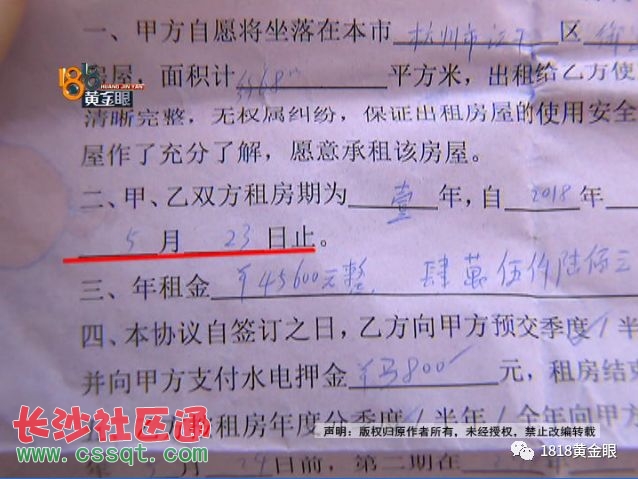 一、甲方自愿将坐落在本市 杭州市江干 区
房屋，面积计 约68m² 平方米，出租给乙方使
1818
HUANG JIN YAN
黄金眼
清晰完整，无权属纠纷，保证出租房屋的使用安全
屋作了充分了解，愿意承租该房屋。
二、甲、乙双方租房期为 壹 年，自 2018 年
5 月 23 日止。
三、年租金 ¥45600元整 肆萬伍仟陆佰
四、本协议自签订之日，乙方向甲方预交季度/半
并向甲方支付水电押金 800 元，租房结束
乙方按租房年度分季度/半年/全年向甲方
长沙社区通
www.cssqt.com
声明：版权归原作者所有，未经授权，禁止改编转载
1818黄金眼
年 月 24日前，第二期在 年